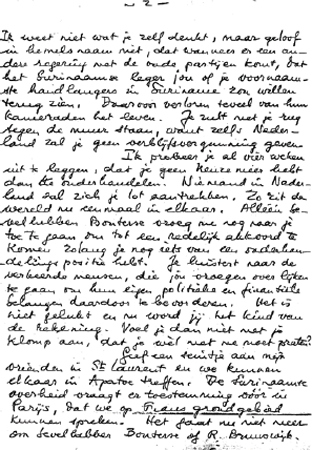 - 2 -
Ik weet niet wat je zelf denkt, maar geloof
in hemelsnaam niet, dat wanneer er een an-
dere regering met de oude partijen komt, dat
het Surinaamse leger jou of je voornaam-
ste handlangers in Suriname zou willen
terug zien. Daarvoor verloren teveel van hun
kameraden het leven. Je zult met je rug
tegen de muur staan, want zelfs Neder-
land zal je geen verblijfsvergunning geven
Ik probeer je al vier weken
uit te leggen, dat je geen keuze meer hebt
dan te onderhandelen. Niemand in Neder-
land zal zich je lot aantrekken. Zo zit de
wereld nu eenmaal in elkaar. Alleen be-
velhebber Bouterse vroeg me nog naar je
toe te gaan om tot een redelijk akkoord te
komen zolang je nog iets van een onderhan-
delingspositie hebt. Je luistert naar de
verkeerde mensen, die jou vroegen over lijken
te gaan om hun eigen politieke en financiële
belangen daardoor te bevorderen. Het is
niet gelukt en nu word jij het kind van
de rekening. Voel je dan niet met je
klomp aan, dat je wel met me moet praten?
Geef een seintje aan mijn
vrienden in St Laurent en we kunnen
elkaar in Apatou treffen. De Surinaamse
overheid vraagt er toestemming vóór in
Parijs, dat we op Frans grondgebied
kunnen spreken. Het gaat nu niet meer
om bevelhebber Bouterse of R. Brunswijk.